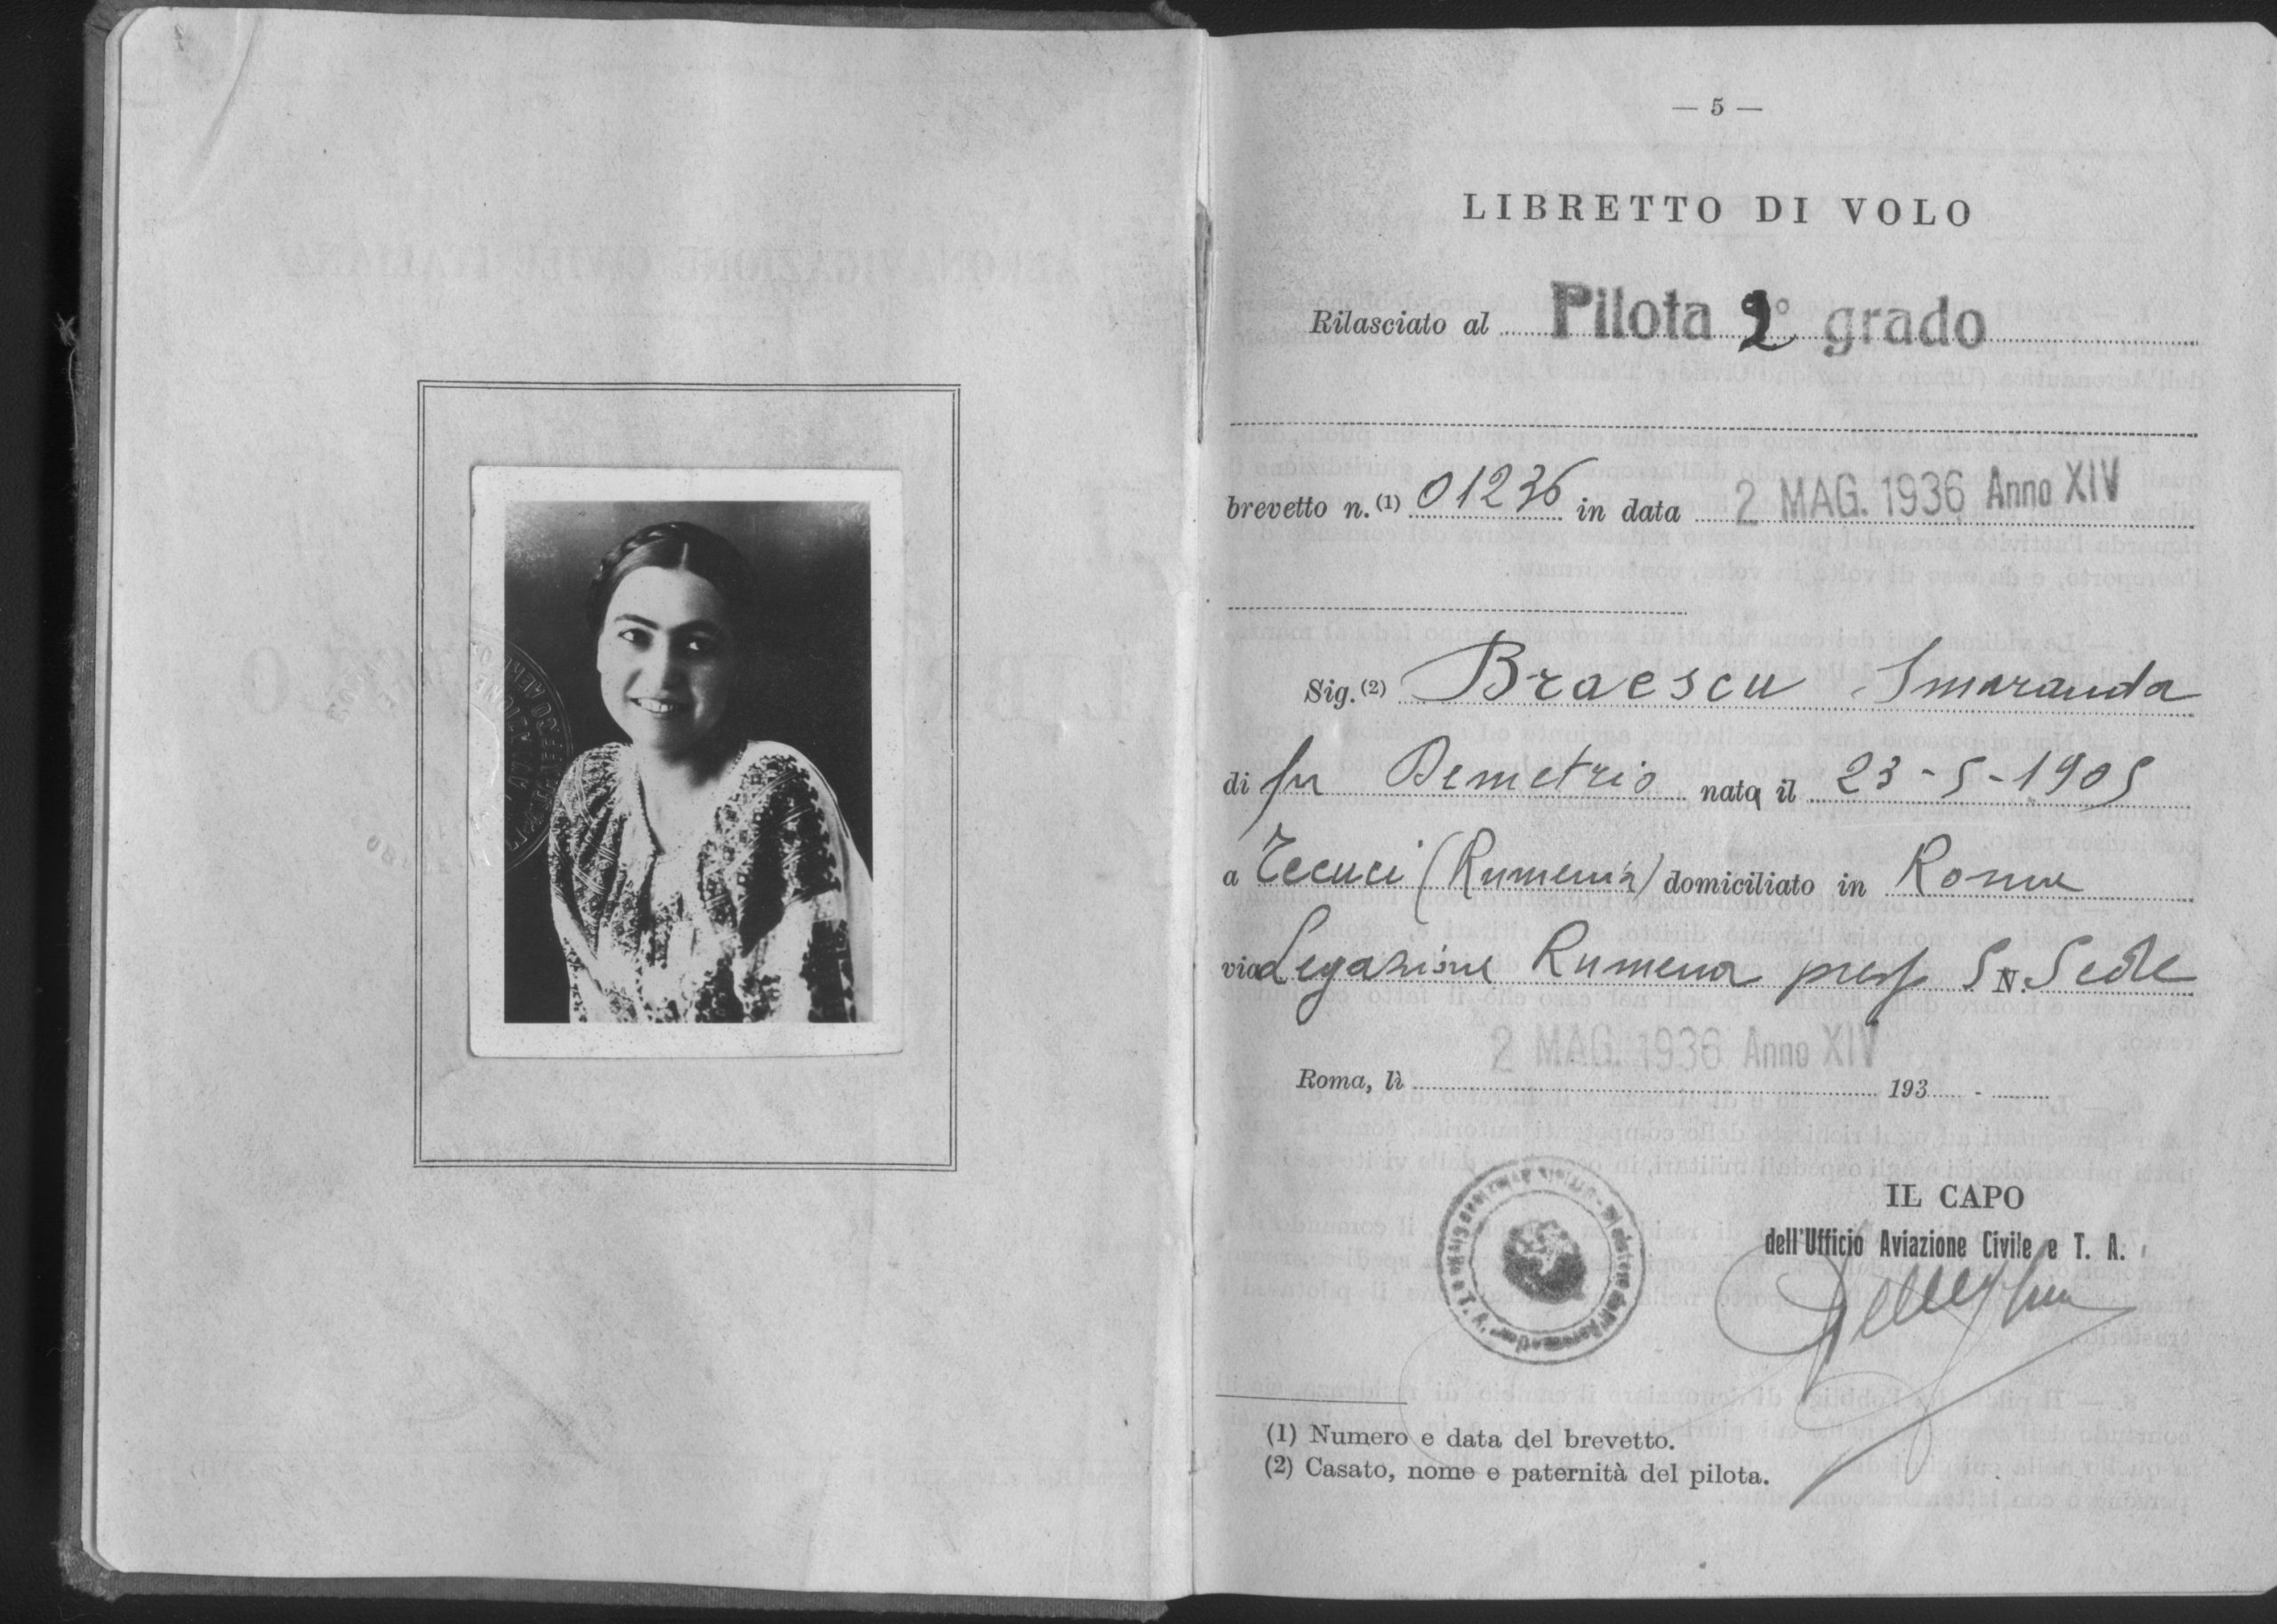 — 5 —
LIBRETTO DI VOLO
Rilasciato al Pilota 2° grado
brevetto n. (1) 01236 in data 2 MAG. 1936 Anno XIV
Sig. (2) Braescu Smaranda
di fu Demetrio nata il 23-5-1905
a Tecuci (Rumenia) domiciliato in Roma
via Legazione Rumena press S N. Sede
2 MAG. 1936 Anno XIV
Roma, lì 193
IL CAPO
dell'Ufficio Aviazione Civile e T. A.
(1) Numero e data del brevetto.
(2) Casato, nome e paternità del pilota.